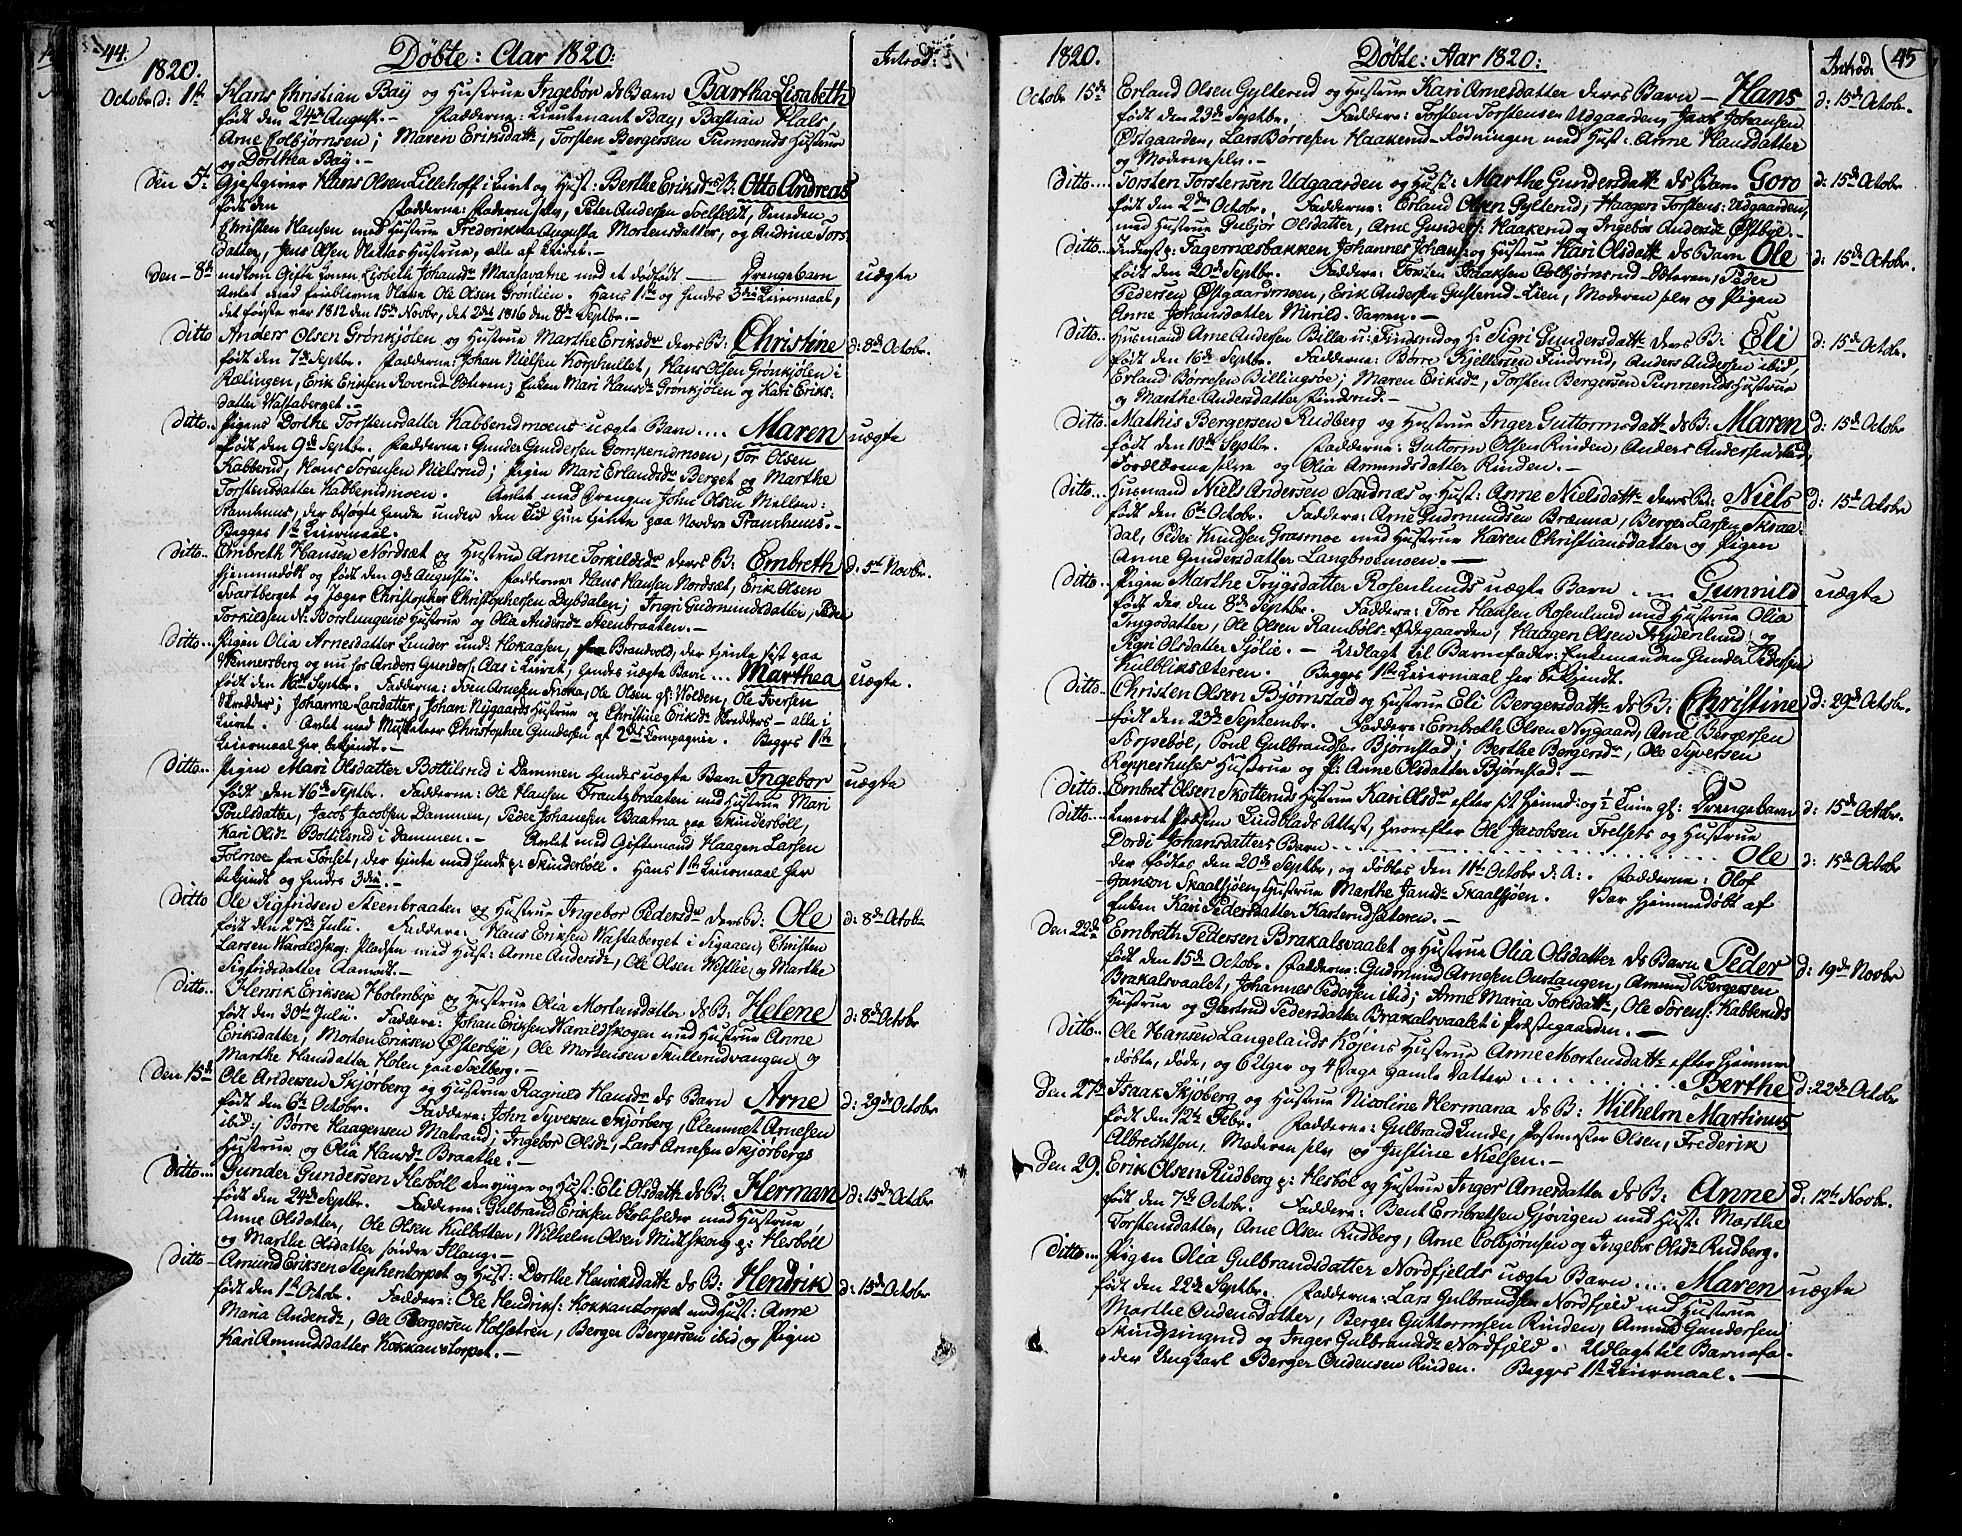 44.
1820. Döbte: Aar 1820: Introd:
Octobr d: 1te Hans Christian Bay og Hustrue Ingebor ds Barn Bartha Lisabeth
født den 24de August. – Fadderne: Lieutenant Bay, Bastian Hals,
Arne Colbjørnsen; Maren Eriksdatt, Torsten Bergersen Hustrue
og Dorthea Bay. –
Den 5te Gjestgiver Hans Olsen Lillehoff i Leiret og Hust: Berthe Eriksdr B: Otto Andreas
født den Fadderne: Faderen selv, Peter Andersen Soelfeldt, Smeden
Christen Hansen med Hustrue Frederikka Augusta Mortensdatter, og Andrine Tors-
datter, Jens Olsen Hustrue, alle af Leiret. –
Den – 8de Lisbeth Johansdr Maasevatne med et dødfødt – Drengebarn uægte
Avlet med Ole Olsen Grönlien. Hans 1te og hendes 3die Leiermaal,
det første var 1812 den 15de Novbr, det 2det 1816 den 8de Septbr. –
Ditto Anders Olsen Grönkjölen og Hustrue Marthe Eriksdr deres B: Christine d: 8de Octobr.
født den 7de Septbr. Fadderne: Johan Nielsen Hans Olsen Grönkjölen i
Rælingen, Erik Eriksen Enken Mari Hansdr Grönkjölen og Kari Eriks-
datter Wastaberget. –
Ditto.. Pigens Dorthe Torstensdatter Kabberudmoens uægte Barn .... Maren uægte
født den 9de Septbr. Fadderne: Gunder Gundersen Tor Olsen
Kabberud, Hans Sørensen Nielsrud; Pigen Mari Erlandsdr Berget og Marthe
Torstensdatter Kabberudmoen. Avlet med Drengen John Olsen Mellem:
der besøgte hende under den Tid hun tjente paa Nordre
Begges 1te Leiermaal.
Ditto.. Embreth Hansen Nordsæt og Hustrue Anne Torkildsdr deres B: Embreth d: 5te Novbr.
hjemmedöbt og født den 9de Augusti. Fadderne: Hans Hansen Nordsæt, Erik Olsen
Svartberget og Jæger Christopher Christophersen Dybdalen; Ingri Gudmundsdatter, Peder
Torkildsen Hustrue og Olia Andersdr Steenbraaten. –
Ditto.. Pigen Olia Arnesdatter Lunder Hokaasen, Brandvold, der tjente sist paa
Wennersberg og nu hos Anders Gunders: Aas i Leiret, hendes uægte Barn ... Marthea uægte.
født den 16de Septbr. Fadderne: Sven Arnesen Ole Olsen Ole Iversen
Skredder; Johanne Larsdatter, Johan Nygaards Hustrue og Christine Eriksdr Skredders – alle i
Leiret. Avlet med Musketeer Christopher Gundersen af 2det Compagnie. Begges 1te
Leiermaal her bekjendt. –
Ditto... Pigen Mari Olsdatter Bottilsrud i Dammen hendes uægte Barn Ingebor uægte
født den 16de Septbr. Fadderne: Ole Hansen Frantzbraaten med Hustrue Mari
Poulsdatter, Jacob Jacobsen Dammen, Peder Johansen Baatna paa Skinderböll,
Kari Olsdr Bottilsrud i Dammen. – Avlet med Giftemand Haagen Larsen
Folmoe fra Tönset, der tjente med hende p: Skinderböll. Hans 1te Leiermaal her
bekjendt og hendes 3die. –
Ditto Ole Sigfridsen Steenbraaten og Hustrue Ingebor Pedersdr deres B: Ole d: 8de Octobr
født den 27de Julii. Fadderne: Hans Eriksen Wastaberget i Sigaaen, Christen
Larsen Pladsen med Hust: Anne Andersdr, Ole Olsen Westlie og Marthe
Sigfridsdatter Aamodt. –
Ditto.. Henrik Eriksen Holmbye og Hustrue Olia Mortensdatter ds B: Helene d: 8de Octobr
født den 30te Julii. Faddere: Johan Eriksen Haraldskogen med Hustrue Anne
Eriksdatter, Morten Eriksen Østerbye, Ole Mortensen Skullerudvangen og
Marthe Hansdatter Holen paa Soelberg. –
Den 15de Ole Andersen Skjörberg og Hustrue Ragnild Hansdr ds Barn Arne d: 29de Octobr
født den 6te Octobr. Faddere: John Syversen Skjörberg, Clemmet Arnesen
ibid:, Børre Haagensen Matrand; Ingebor Olsdr, Lars Arnesen Skjörbergs
Hustrue og Olia Hansdr Braathe. –
Ditto... Gunder Gundersen Hesböll den yngre og Hust: Eli Olsdatt ds B: Herman d: 15de Octobr
født den 24de Septbr. Fadderne: Gulbrand Eriksen med Hustrue
Anne Olsdatter, Ole Olsen Kulbotten, Wilhelm Olsen p: Hesböll
og Marthe Olsdatter søndre Allang. –
Ditto – Amund Eriksen Stephentorpet og Hust: Dorthe Henriksdatt ds B: Hendrik d: 15de Octobr
født den 1te Octobr. Faddere: Ole Hendriks: Kokkanstorpet med Hust: Anne
Maria Andersdr, Ole Bergersen Holsætren, Berger Bergersen ibid og Pigen
Kari Amundsdatter Kokkanstorpet. –
45
1820. Döbte: Aar 1820: Introd:
Octobr 15de Erland Olsen Gylterud og Hustrue Kari Arnesdatter deres Barn – Hans d: 15de Octobr.
født den 23de Septbr. Faddere: Torsten Torstensen Udgaarden, Jacob Johansen
Østgaarden, Lars Børresen Haakerud-Rødningen med Hust: Anne Hansdatter
og Moderen selv. –
Ditto.... Torsten Torstensen Udgaarden og Hust: Marthe Gundersdatt ds Barn Goro d: 15de Octobr
født den 2den Octobr. Faddere: Erland Olsen Gylterud, Haagen Torstens: Udgaarden,
med Hustrue Gubjør Olsdatter, Arne Gunders: Haakerud og Ingebor Andersdr Østbye. –
Ditto Inderst p: Fagernæsbakken Johannes Johans: og Hustrue Kari Olsdatt ds Barn Ole d: 15de Octobr.
født den 20de Septbr. Faddere: Isaaksen Colbjørnsrud-Æteren, Peder
Pedersen Østgaardmoen, Erik Andersen Gusterud-Lien, Moderen selv og Pigen
Anne Johansdatter
Ditto.. Husmand Arne Andersen Billa u: Findsrud og H: Sigri Gundersdatt deres B: Eli d: 15de Octobr.
født den 16de Septbr. Faddere: Børre Kjeldsen Findsrud, Anders Andersen ibid,
Erland Børresen Billingsøe; Maren Eriksdr, Torsten Bergersen Hustrue
og Marthe Andersdatter Findsrud. –
Ditto. Mathis Bergersen Rudberg og Hustrue Inger Guttormsdatt ds B: Maren d: 15de Octobr
født den 10de Septbr. Faddere: Guttorm Olsen Rinden, Anders Andersen ibid,
Forældrene selv og Olia Amundsdatter Rinden. –
Ditto... Husmand Niels Andersen Sandnæs og Hust: Anne Nielsdatt deres B: Niels d: 15de Octobr
født den 6te Octobr. Faddere: Arne Gudmundsen Brænna, Berger Larsen
dal, Peder Knudsen Grasmoe med Hustrue Karen Christiansdatter og Pigen
Anne Gundersdatter Langbroemoen. –
Ditto... Pigen Marthe Trygsdatter Rosenlunds uægte Barn .... Gunnild uægte
født den 8de Septbr. Faddere: Tore Hansen Rosenlund med Hustrue Olia
Trygsdatter, Ole Olsen Ramböls-Ødegaarden, Haagen Olsen Frydenlund; og
Sigri Olsdatter Sjølie. – Udlagt til Barnefader: Enkemanden Gunder Pedersen
Kulbliksæteren. Begges 1te Leiermaal her bekjendt.
Ditto.. Christen Olsen Bjørnstad og Hustrue Eli Bergersdatt ds B: Christine d: 29de Octobr.
født den 23de Septembr. Faddere: Embreth Olsen Nygaard, Arne Bergersen
Sörpeböl, Poul Gulbrandsen Bjørnstad; Berthe Bergersdr, Ole Syversen
Reppeshuses Hustrue og P: Anne Olsdatter Bjørnstad. –
Ditto Embret Olsen Skotteruds Hustrue Kari Olsdr efter Drengebarn d: 15de Octobr.
Ditto... Leveret Præsten Lindblads Attest, hvorefter Ole Jacobsen Frelsets og Hustrue
Dordi Johansdatters Barn ........................ Ole d: 15de Octobr
der fødtes den 20de Septbr, og döbtes den 11te Octobr d. A:. Fadderne: Olof
Janson Skaalsjöen, Hustrue Marthe Jansdr Skaalsjöen. Var hjemmedöbt af
Enken Kari Pedersdatter Kasterudsæteren. –
Den 22de Embreth Pedersen Brakalsvaalet og Hustrue Olia Olsdatter ds Barn Peder d: 19de Novbr
født den 15de Octobr. Fadderne: Gudmund Arnesen Overtangen, Amund Bergersen
Brakalsvaalet, Johannes Pedersen ibid; Anne Maria Toresdatt, Ole Sørens: Kabberuds
Hustrue og Gjertrud Pedersdatter Brakalsvaalet i Præstegaarden. –
Ditto... Ole Hansen Langelands Køjens Hustrue Anne Mortensdatt efter hjemme-
döbte, døde, og 6 Uger og 4 Dage gamle Datter .......... Berthe d: 22de Octobr
Den 27de Isaak Skjöberg og Hustrue Nicoline Hermana ds B: Wilhelm Martinus
født den 12te Febr. Fadderne: Gulbrand Lunde, Postmester Olsen, Frederik
Albrechtson, Moderen selv og Justine Nielsen. –
Den 29. Erik Olsen Rudberg p: Hesböl og Hustrue Inger Arnesdatter ds B: Anne d: 12te Novbr.
født den 7de Octobr. Faddere: Bent Embretsen Gjøvigen med Hust: Marthe
Torstensdatter, Arne Olsen Rudberg, Arne Colbjørnsen og Ingebor Olsdr Rudberg.
Ditto... Pigen Olia Gulbrandsdatter Nordfjelds uægte Barn .... Maren uægte
født den 22de Septbr. Fadderne: Lars Gulbrandsen Nordfjeld med Hustrue
Marthe Oudensdatter, Berger Guttormsen Rinden, Amund Gundersen
og Inger Gulbrandsdr Nordfjeld. Udlagt til Barnefa-
der Ungkarl Berger Oudensen Rinden. Begges 1te Leiermaal. –